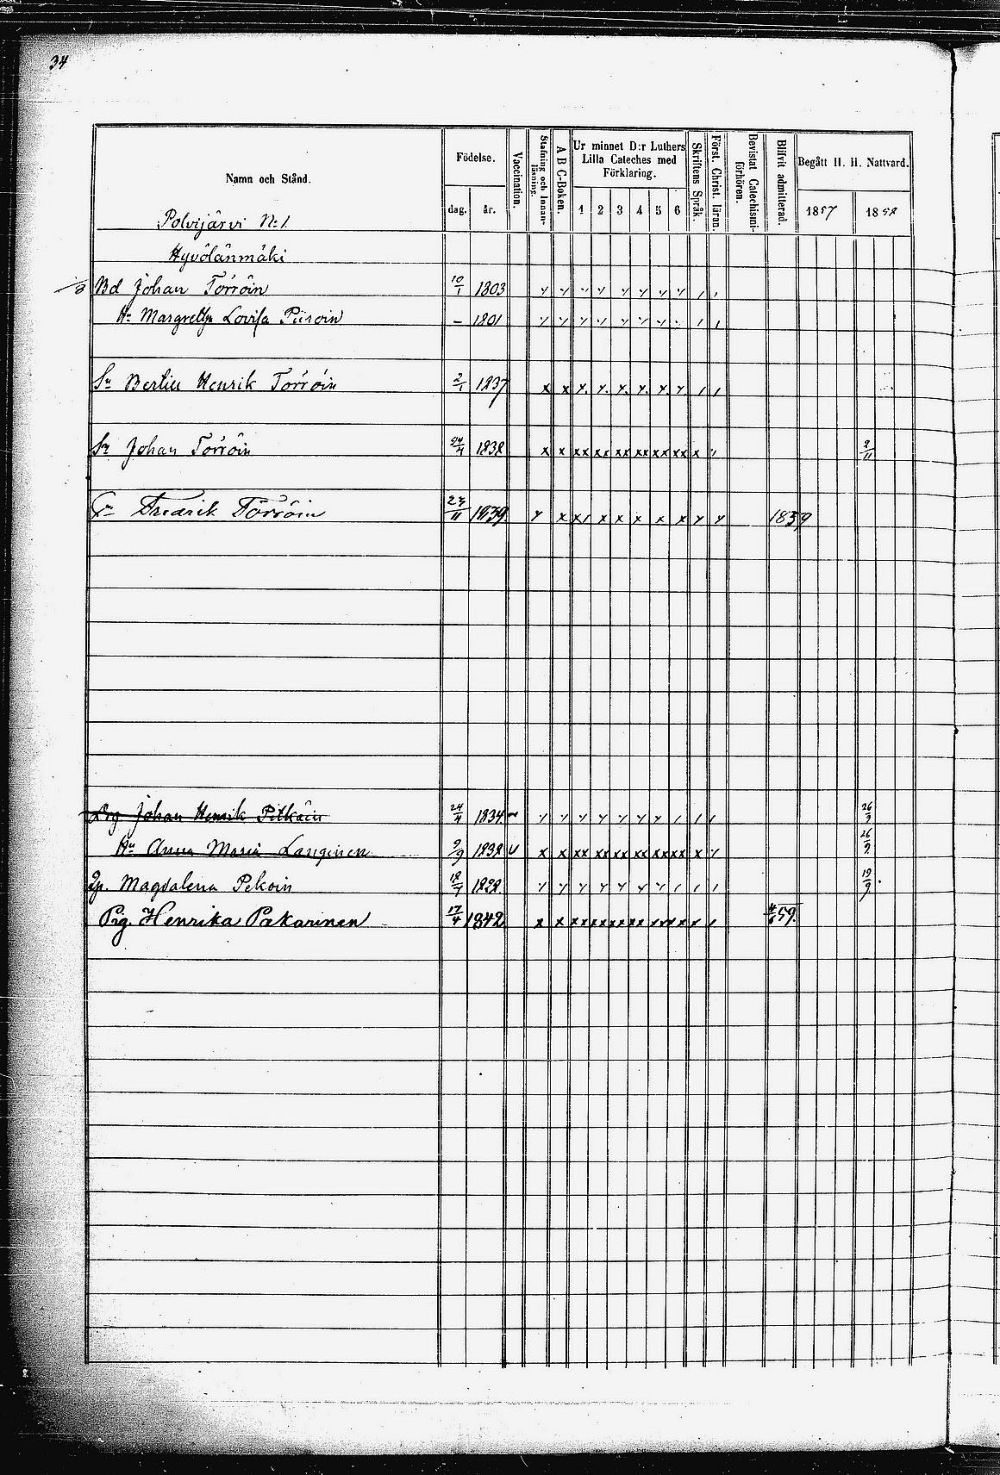 34
Namn och Stånd.
Födelse.
dag.
år.
Vaccination.
Stafning och Innanläsning.
A B C-Boken.
Ur minnet D:r Luthers Lilla Cateches med Förklaring.
1 2 3 4 5 6
Skriftens Språk.
Först. Christ. läran.
Bevistat Catechismiförhören.
Blifvit admitterad.
Begått H. H. Nattvard.
1857 1858
Polvijärvi N:1.
Hyvölänmäki
Bd Johan Törröin 10/1 1803
H:u Margretha Lovisa Piiroin – 1801
Sn Bertill Henrik Törröin 2/1 1837
Sn Johan Törröin 24/4 1838 2/11
Sn Fredrik Törröin 23/11 1839 1859
Drg Johan Henrik Pitkäin 24/4 1834 26/9
Hu Anna Maria Langinen 9/9 1838 v 26/9
Pg. Magdalena Pekoin 12/7 1822 19/9
Pig. Henrika Pakarinen 17/4 1842 4/6 59.